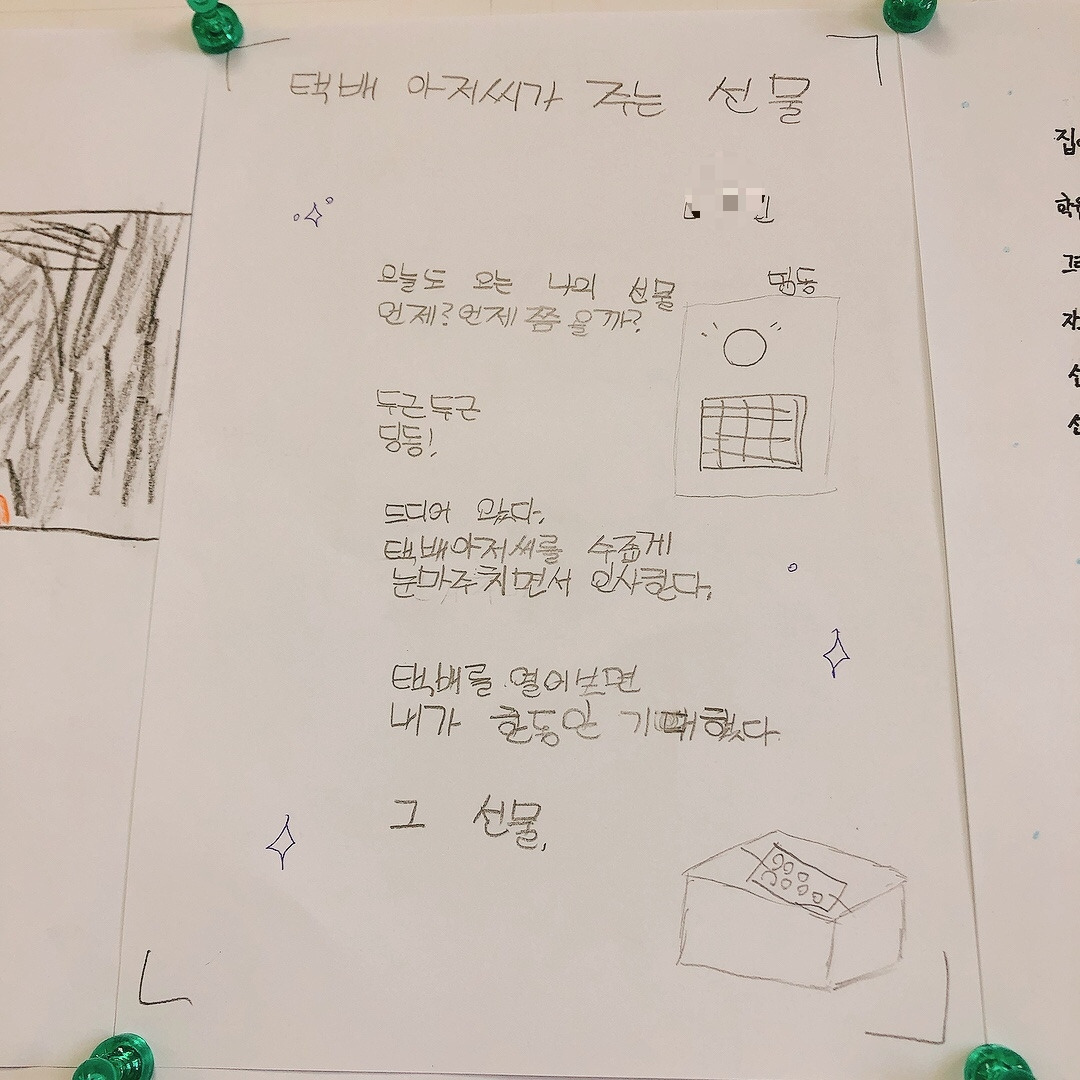 택배 아저씨가 주는 선물
오늘도 오는 나의 선물
언제? 언제쯤 올까?
띵동
두근두근
딩동!
드디어 왔다.
택배아저씨를 수줍게
눈마주치면서 인사한다.
택배를 열어보면
내가 한동안 기대했다
그 선물.
집
학원
자
선